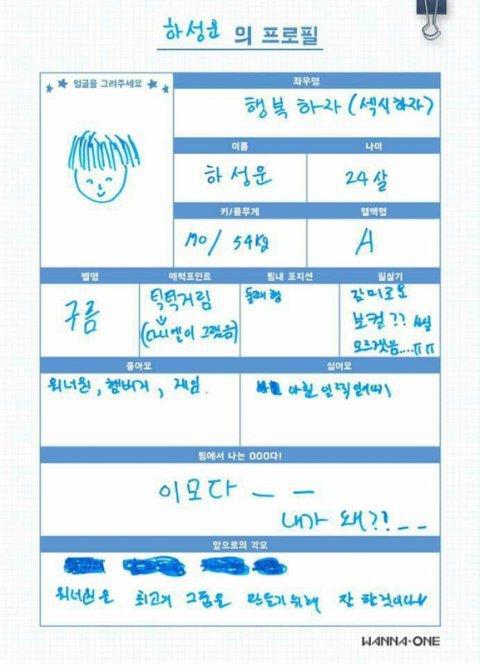 하성운 의 프로필
얼굴을 그려주세요
좌우명
행복하자 (섹시하자)
이름
하성운
나이
24살
키/몸무게
170 / 54kg
혈액형
A
별명
구름
매력포인트
틱틱거림
(다니엘이 그랬음)
팀내 포지션
둘째형
필살기
감미로운
보컬?? 사실
모르겠음....ㅠㅠ
좋아요
워너원, 햄버거, 게임.
싫어요
아침 일찍 일어나기
팀에서 나는 OOO다!
이모다 _ _
내가 왜?!_ _
앞으로의 각오
워너원은 최고의 그룹을 만들기 위해 잘 할것이다
WANNA·ONE